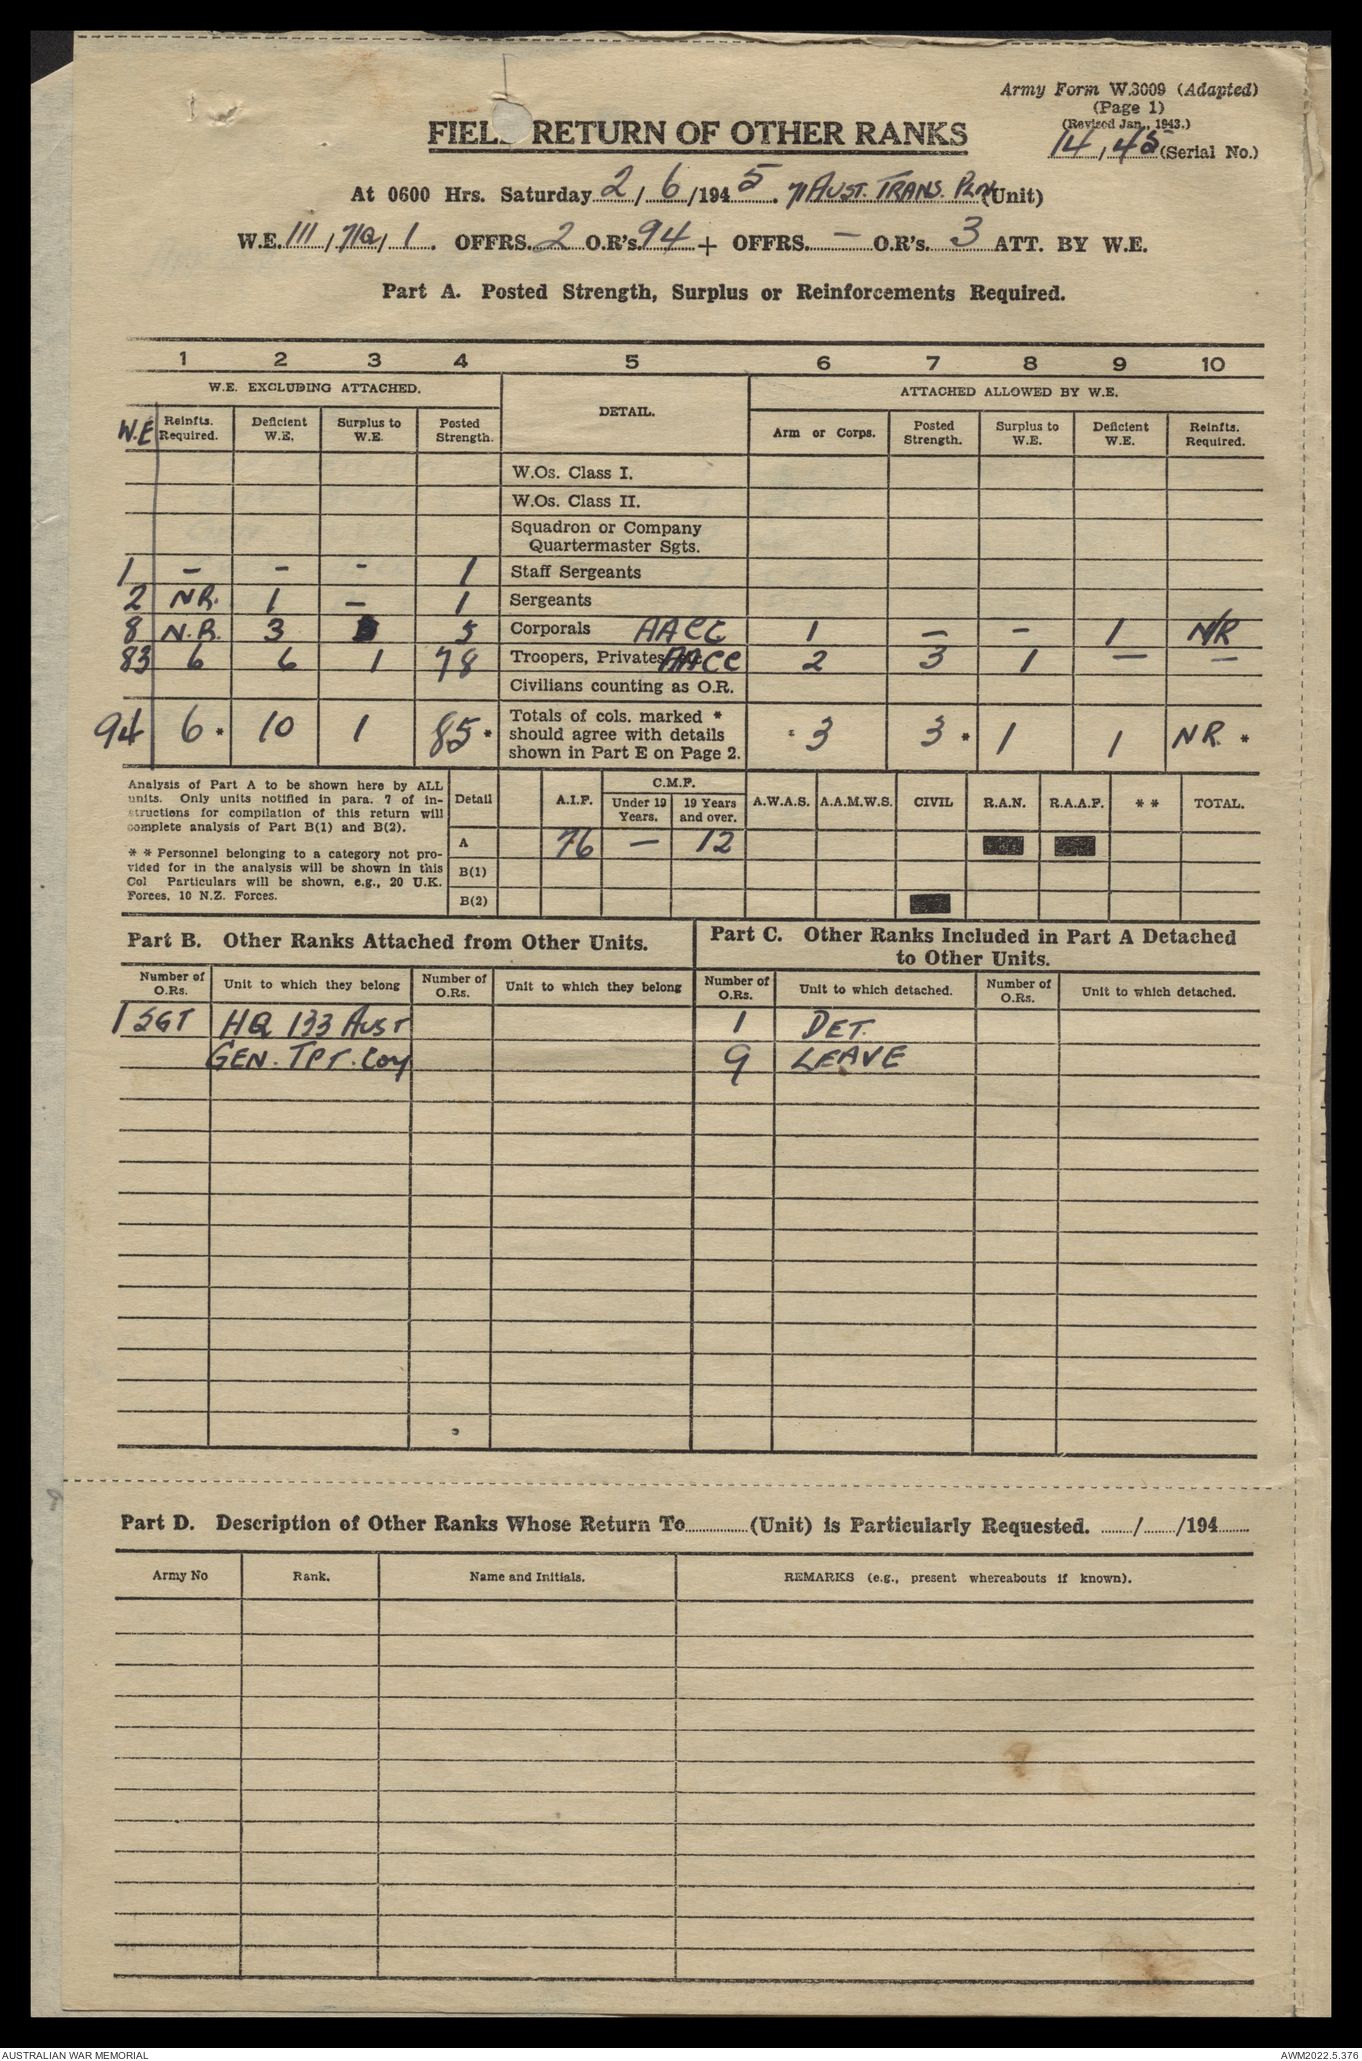 Army Form W.3009 (Adapted)
(Page 1)
(Revised Jan., 1943.)
14/45 (Serial No.)
FIELD RETURN OF OTHER RANKS
At 0600 Hrs. Saturday 2/6/1945. 71 AUST. TRANS. PLN. (Unit)
W.E. 111/71Q/1. OFFRS. 2 O.R's. 94 + OFFRS. — O.R's. 3 ATT. BY W.E.
Part A. Posted Strength, Surplus or Reinforcements Required.
1 2 3 4 5 6 7 8 9 10
W.E. EXCLUDING ATTACHED. DETAIL. ATTACHED ALLOWED BY W.E.
W.E Reinfts. Required. Deficient W.E. Surplus to W.E. Posted Strength. Arm or Corps. Posted Strength. Surplus to W.E. Deficient W.E. Reinfts. Required.
W.Os. Class I.
W.Os. Class II.
Squadron or Company
Quartermaster Sgts.
1 – – – 1 Staff Sergeants
2 N.R. 1 – 1 Sergeants
8 N.R. 3 5 Corporals AACC 1 – – 1 NR
83 6 6 1 78 Troopers, Privates AACC 2 3 1 – –
Civilians counting as O.R.
94 6 * 10 1 85 * Totals of cols. marked * should agree with details shown in Part E on Page 2. 3 3 * 1 1 NR. *
Analysis of Part A to be shown here by ALL
units. Only units notified in para. 7 of in-
structions for compilation of this return will
complete analysis of Part B(1) and B(2).
* * Personnel belonging to a category not pro-
vided for in the analysis will be shown in this
Col Particulars will be shown, e.g., 20 U.K.
Forces, 10 N.Z. Forces.
Detail A.I.F. C.M.F. Under 19 Years. 19 Years and over. A.W.A.S. A.A.M.W.S. CIVIL R.A.N. R.A.A.F. * * TOTAL.
A 76 – 12
B(1)
B(2)
Part B. Other Ranks Attached from Other Units.
Number of O.Rs. Unit to which they belong Number of O.Rs. Unit to which they belong
1 SGT HQ 133 AUST
GEN. TPT. Coy
Part C. Other Ranks Included in Part A Detached
to Other Units.
Number of O.Rs. Unit to which detached. Number of O.Rs. Unit to which detached.
1 DET.
9 LEAVE
Part D. Description of Other Ranks Whose Return To............(Unit) is Particularly Requested. ......./......./194.......
Army No Rank. Name and Initials. REMARKS (e.g., present whereabouts if known).
AUSTRALIAN WAR MEMORIAL
AWM2022.5.376